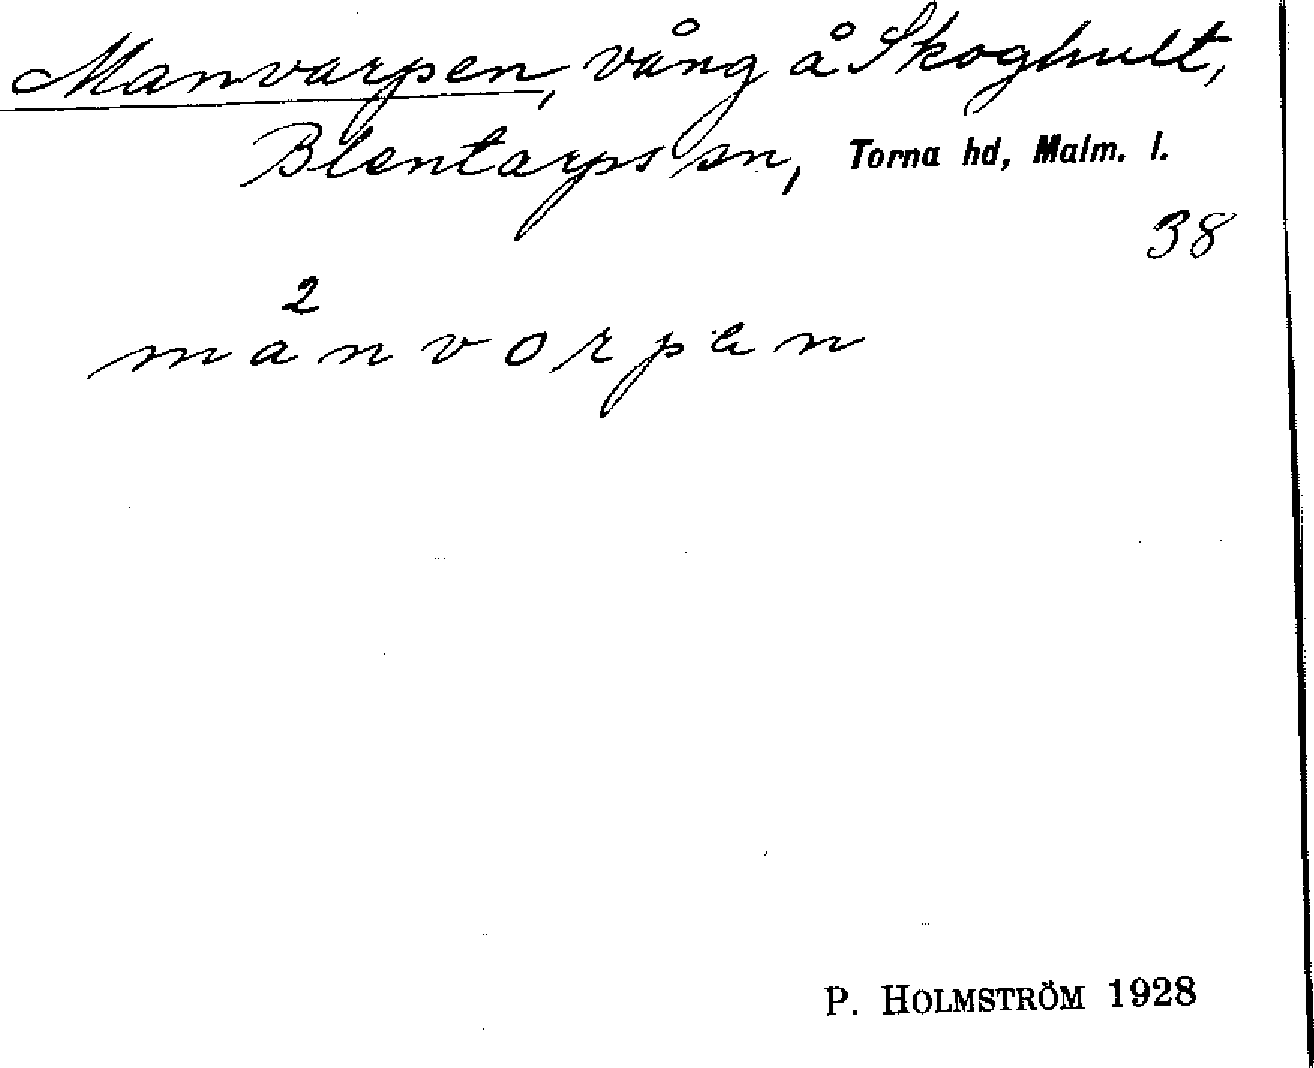 Manvarpen, vång å Skoghult,
Blentarps sn, Torna hd, Malm. l.
38
2
manvorpen
P. HOLMSTRÖM 1928